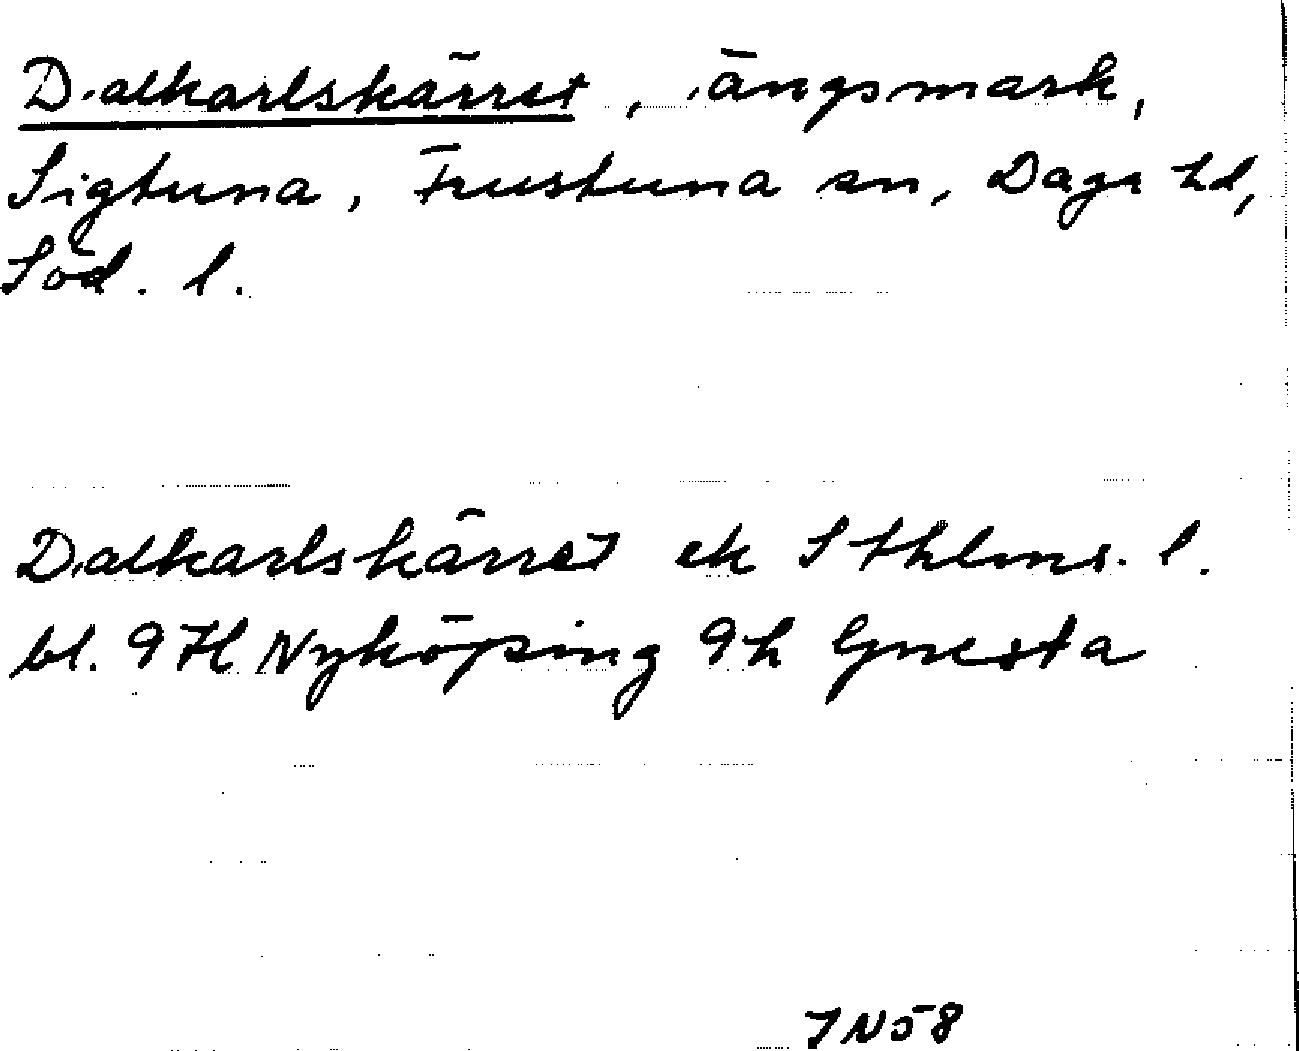 Dalkarlskärret, ängsmark,
Sigtuna, Frustuna sn, Daga hd,
Söd. l.
Dalkarlskärret ek Sthlms. l.
bl. 9H Nyköping 9h Gnesta
IN58